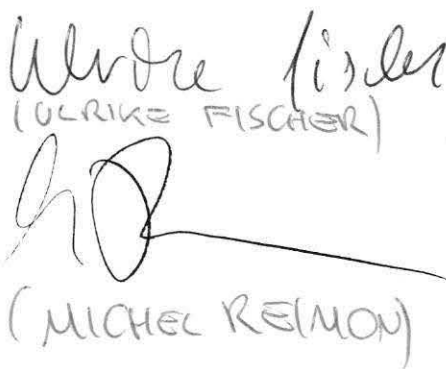 Ulrike Fischer
(ULRIKE FISCHER)
(MICHEL REIMON)